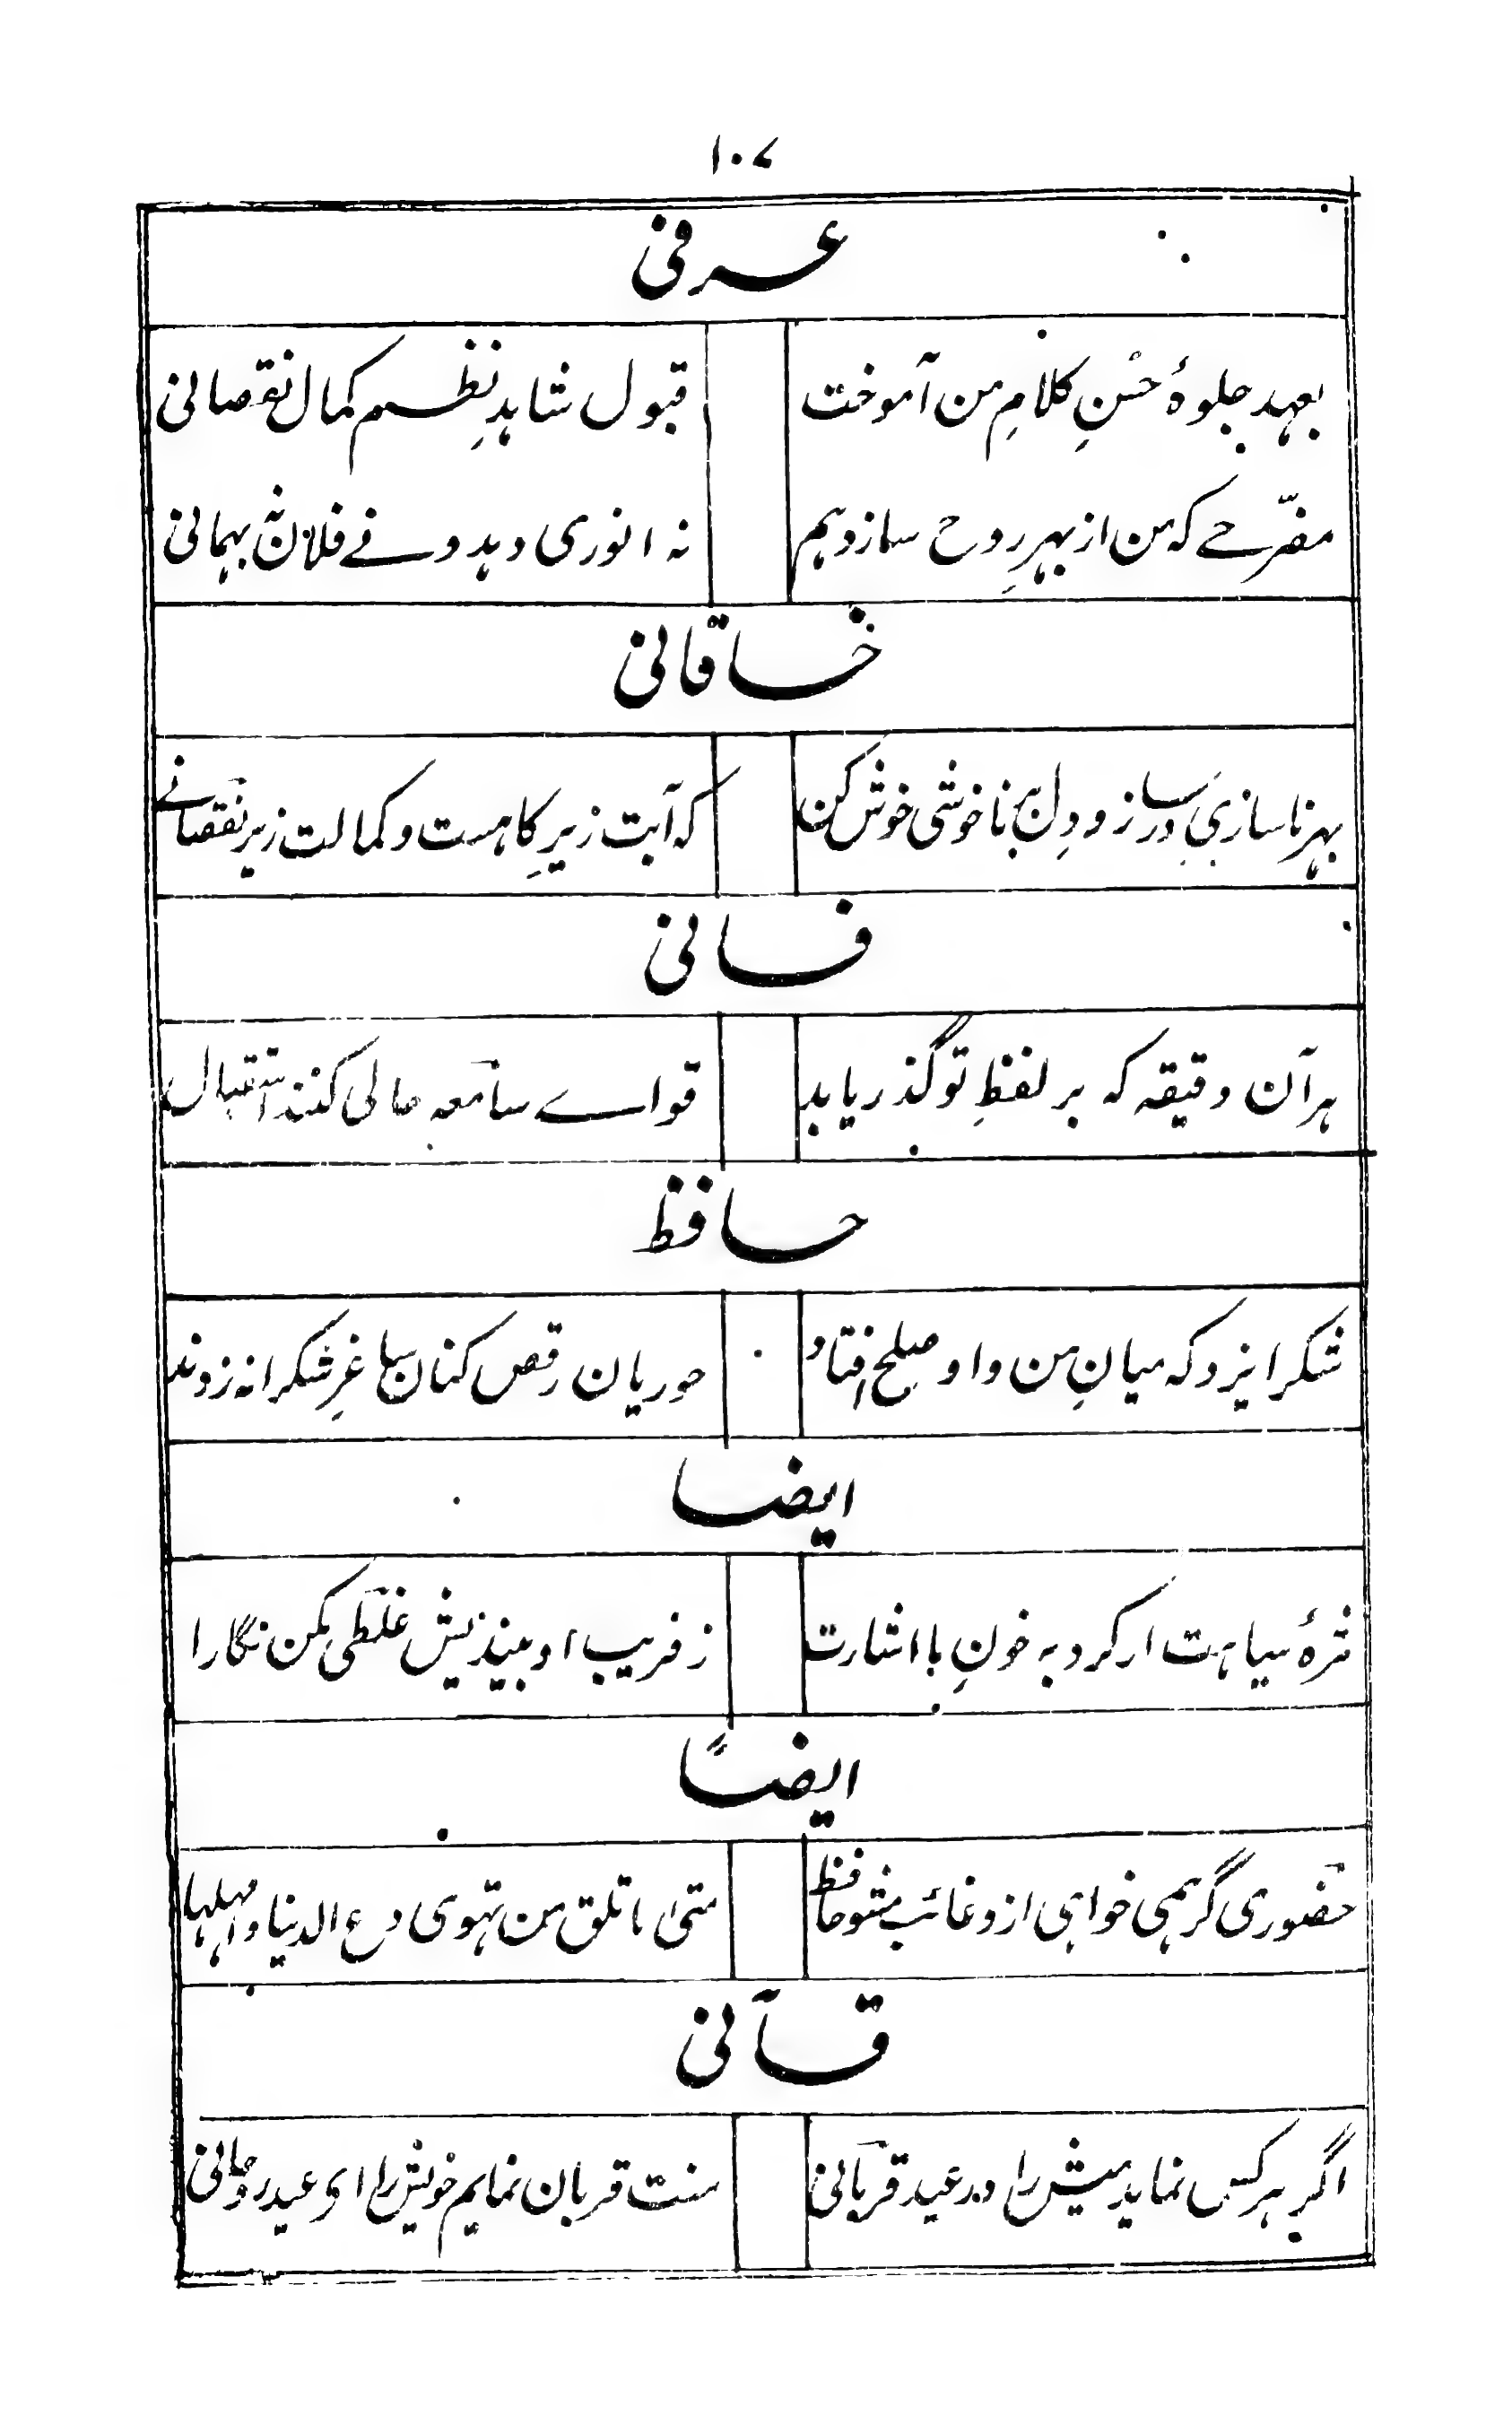 ۱۰۷
عرفی
بعہد جلوۂ حُسنِ کلامِ من آموخت
قبول شاہدِ نظم کمال نقصانی
مفرّحے کہ من از بہرِ روح سازدہم
نہ انوری دہد و نے فلان نہ بہمانی
خاقانی
بہر ناسازیِ در ساز و دِل بر ناخوشی خوش کن
کہ آبت زیرِ کاہست و کمالت زیر نقصانے
فانی
ہر آن دقیقہ کہ بر لفظِ تو گذر یابد
قواے سامعہ حالی کنند استقبال
حافظ
شکر ایزد کہ میانِ من و او صلح افتاد
حوریان رقص کنان ساغرِ شکرانہ زدند
ایضا
مژۂ سیاہت ار کرد بہ خونِ ما اشارت
ز فریب او بیندیش غلطی مکن نگارا
ایضاً
حضوری گر ہمی خواہی ازو غائب مشو حافظ
متیٰ ما تلق من تہوی دع الدنیا و اہملہا
قاآنی
اگر ہر کس نماید میش را در عید قربانی
منت قربان نمایم خویش را ای عید روحانی